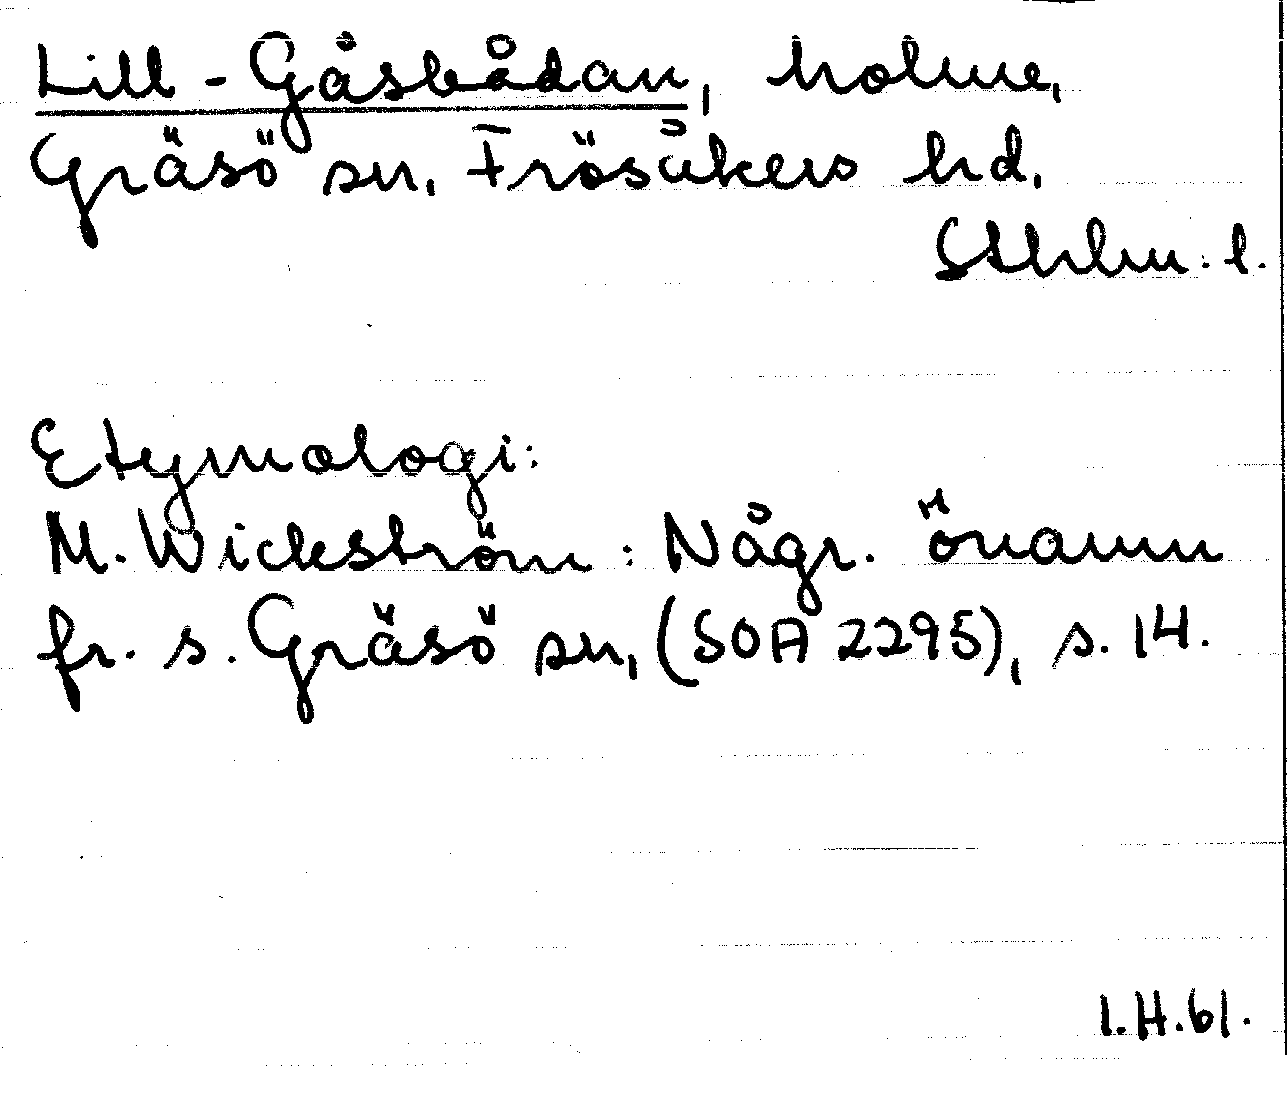 Lill-Gåsbådan, holme,
Gräsö sn, Frösåkers hd.
Sthlm. l.
Etymologi:
M. Wickström: Någr. önamn
fr. s. Gräsö sn, (SOA 2295), s. 14.
I.H.61.